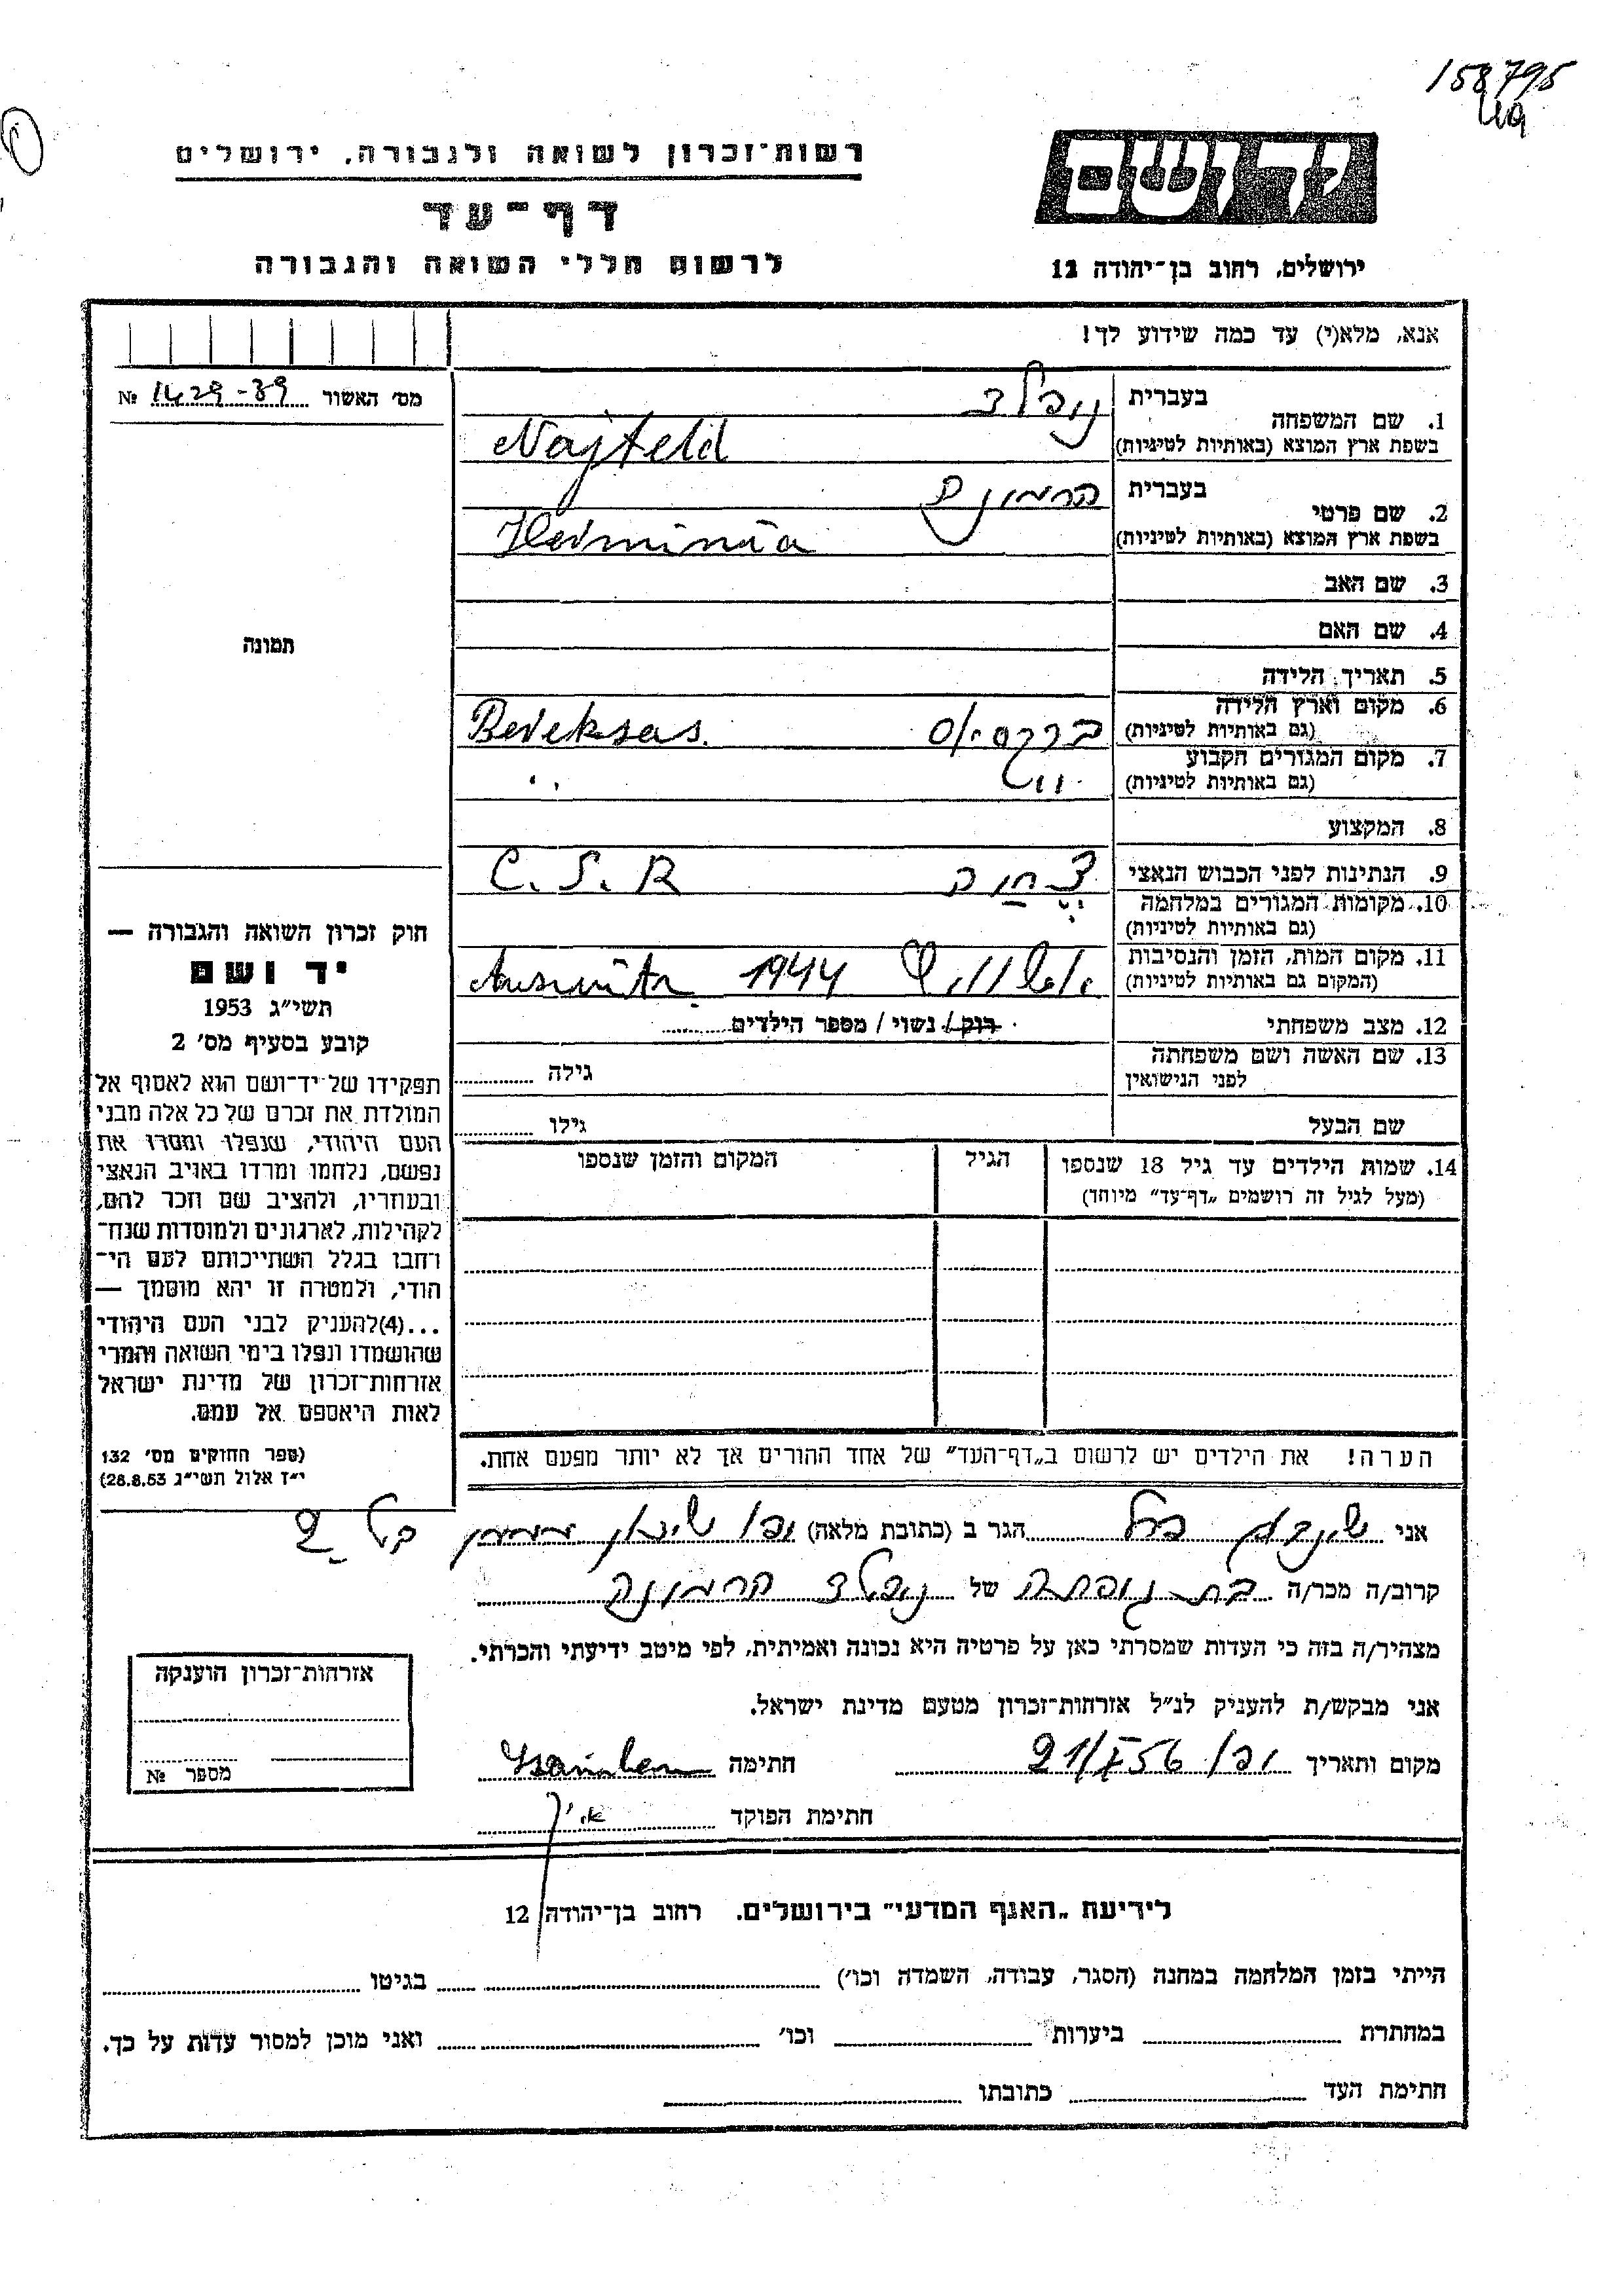 158795
רשות־זכרון לשואה ולגבורה, ירושלים
יד ושם
דף־עד
לרשום חללי השואה והגבורה
ירושלים, רחוב בן־יהודה 12
אנא, מלא(י) עד כמה שידוע לך!
מס' האשור 1429-39 №
1. שם המשפחה
בעברית
בשפת ארץ המוצא (באותיות לטיניות) Najfeld
2. שם פרטי
בעברית
בשפת ארץ המוצא (באותיות לטיניות) Herminia
3. שם האב
4. שם האם
תמונה
5. תאריך הלידה
6. מקום וארץ הלידה
(גם באותיות לטיניות) Bereksas.
7. מקום המגורים הקבוע
(גם באותיות לטיניות) ,,
8. המקצוע
9. הנתינות לפני הכבוש הנאצי C.S.R
10. מקומות המגורים במלחמה
(גם באותיות לטיניות)
11. מקום המות, הזמן והנסיבות
(המקום גם באותיות לטיניות) 1944
12. מצב משפחתי רוק / נשוי / מספר הילדים
13. שם האשה ושם משפחתה
לפני הנישואין גילה
שם הבעל גילו
14. שמות הילדים עד גיל 18 שנספו הגיל המקום והזמן שנספו
(מעל לגיל זה רושמים „דף־עד" מיוחד)
חוק זכרון השואה והגבורה —
יד ושם
תשי"ג 1953
קובע בסעיף מס' 2
תפקידו של יד־ושם הוא לאסוף אל
המולדת את זכרם של כל אלה מבני
העם היהודי, שנפלו ומסרו את
נפשם, נלחמו ומרדו באויב הנאצי
ובעוזריו, ולהציב שם וזכר להם,
לקהילות, לארגונים ולמוסדות שנח־
רחבו בגלל השתייכותם לעם הי־
הודי, ולמטרה זו יהא מוסמך —
...(4)להעניק לבני העם היהודי
שהושמדו ונפלו בימי השואה והמרי
אזרחות־זכרון של מדינת ישראל
לאות היאספם אל עמם.
(ספר החוקים מס' 132
י"ז אלול תשי"ג 28.8.53)
הערה! את הילדים יש לרשום ב„דף־העד" של אחד ההורים אך לא יותר מפעם אחת.
אני הגר ב (כתובת מלאה)
קרוב/ה מכר/ה של נויפלד הרמינה
מצהיר/ה בזה כי העדות שמסרתי כאן על פרטיה היא נכונה ואמיתית, לפי מיטב ידיעתי והכרתי.
אני מבקש/ת להעניק לנ"ל אזרחות־זכרון מטעם מדינת ישראל.
מקום ותאריך חתימה
חתימת הפוקד
אזרחות־זכרון הוענקה
מספר №
לידיעת „האגף המדעי" בירושלים. רחוב בן־יהודה 12
הייתי בזמן המלחמה במחנה (הסגר, עבודה, השמדה וכו') בגיטו
במחתרת ביערות וכו' ואני מוכן למסור עדות על כך.
חתימת העד כתובתו